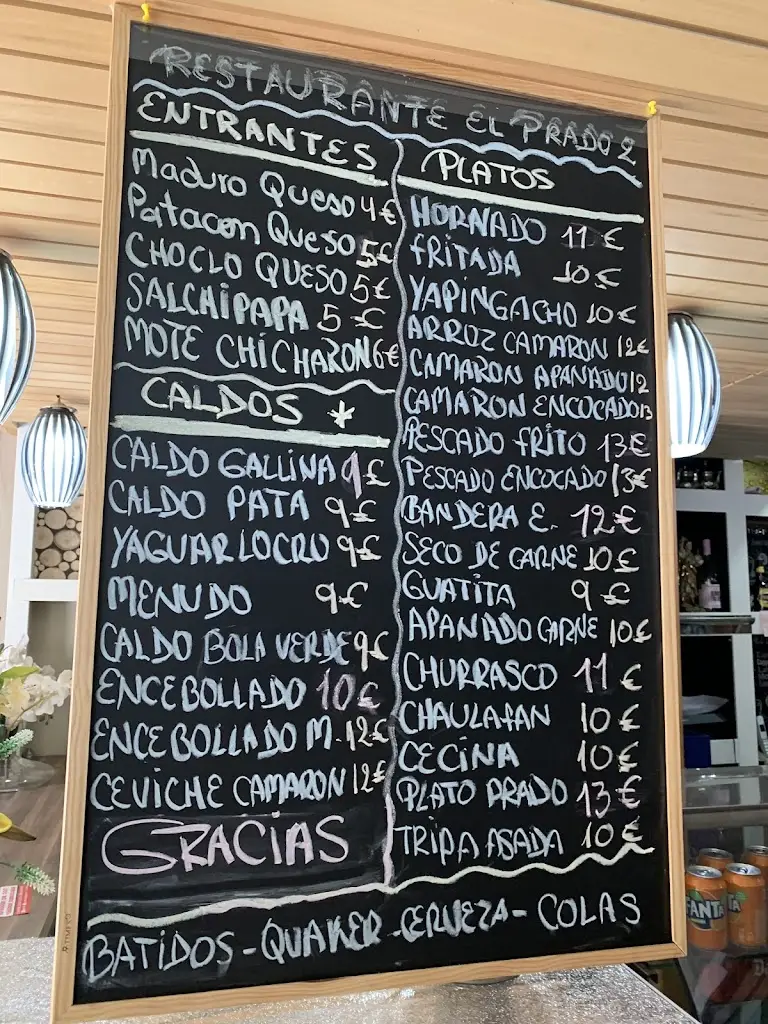 RESTAURANTE EL PRADO 2
ENTRANTES
Maduro Queso 4€
Patacon Queso 5€
CHOCLO QUESO 5€
SALCHIPAPA 5€
MOTE CHICHARON 6€
CALDOS *
CALDO GALLINA 9€
CALDO PATA 9€
YAGUARLOCRO 9€
MENUDO 9€
CALDO BOLA VERDE 9€
ENCEBOLLADO 10€
ENCEBOLLADO M. 12€
CEVICHE CAMARON 12€
GRACIAS
PLATOS
HORNADO 11€
FRITADA 10€
YAPINGACHO 10€
ARROZ CAMARON 12€
CAMARON APANADO 12
CAMARON ENCOCADO 13
PESCADO FRITO 13€
PESCADO ENCOCADO 13€
BANDERA E. 12€
SECO DE CARNE 10€
GUATITA 9€
APANADO CARNE 10€
CHURRASCO 11€
CHAULAFAN 10€
CECINA 10€
PLATO PRADO 13€
TRIPA ASADA 10€
BATIDOS - QUAKER - CERVEZA - COLAS
FANTA